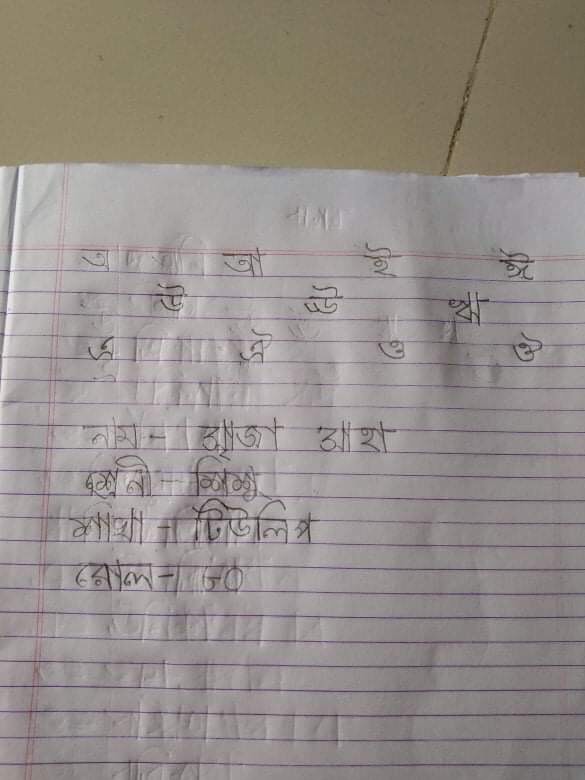 অ আ ই ঈ
উ ঊ ঋ
এ ঐ ও ঔ
নাম - সৃজা সাহা
শ্রেনী - শিশু
শাখা - টিউলিপ
রোল - ৮০